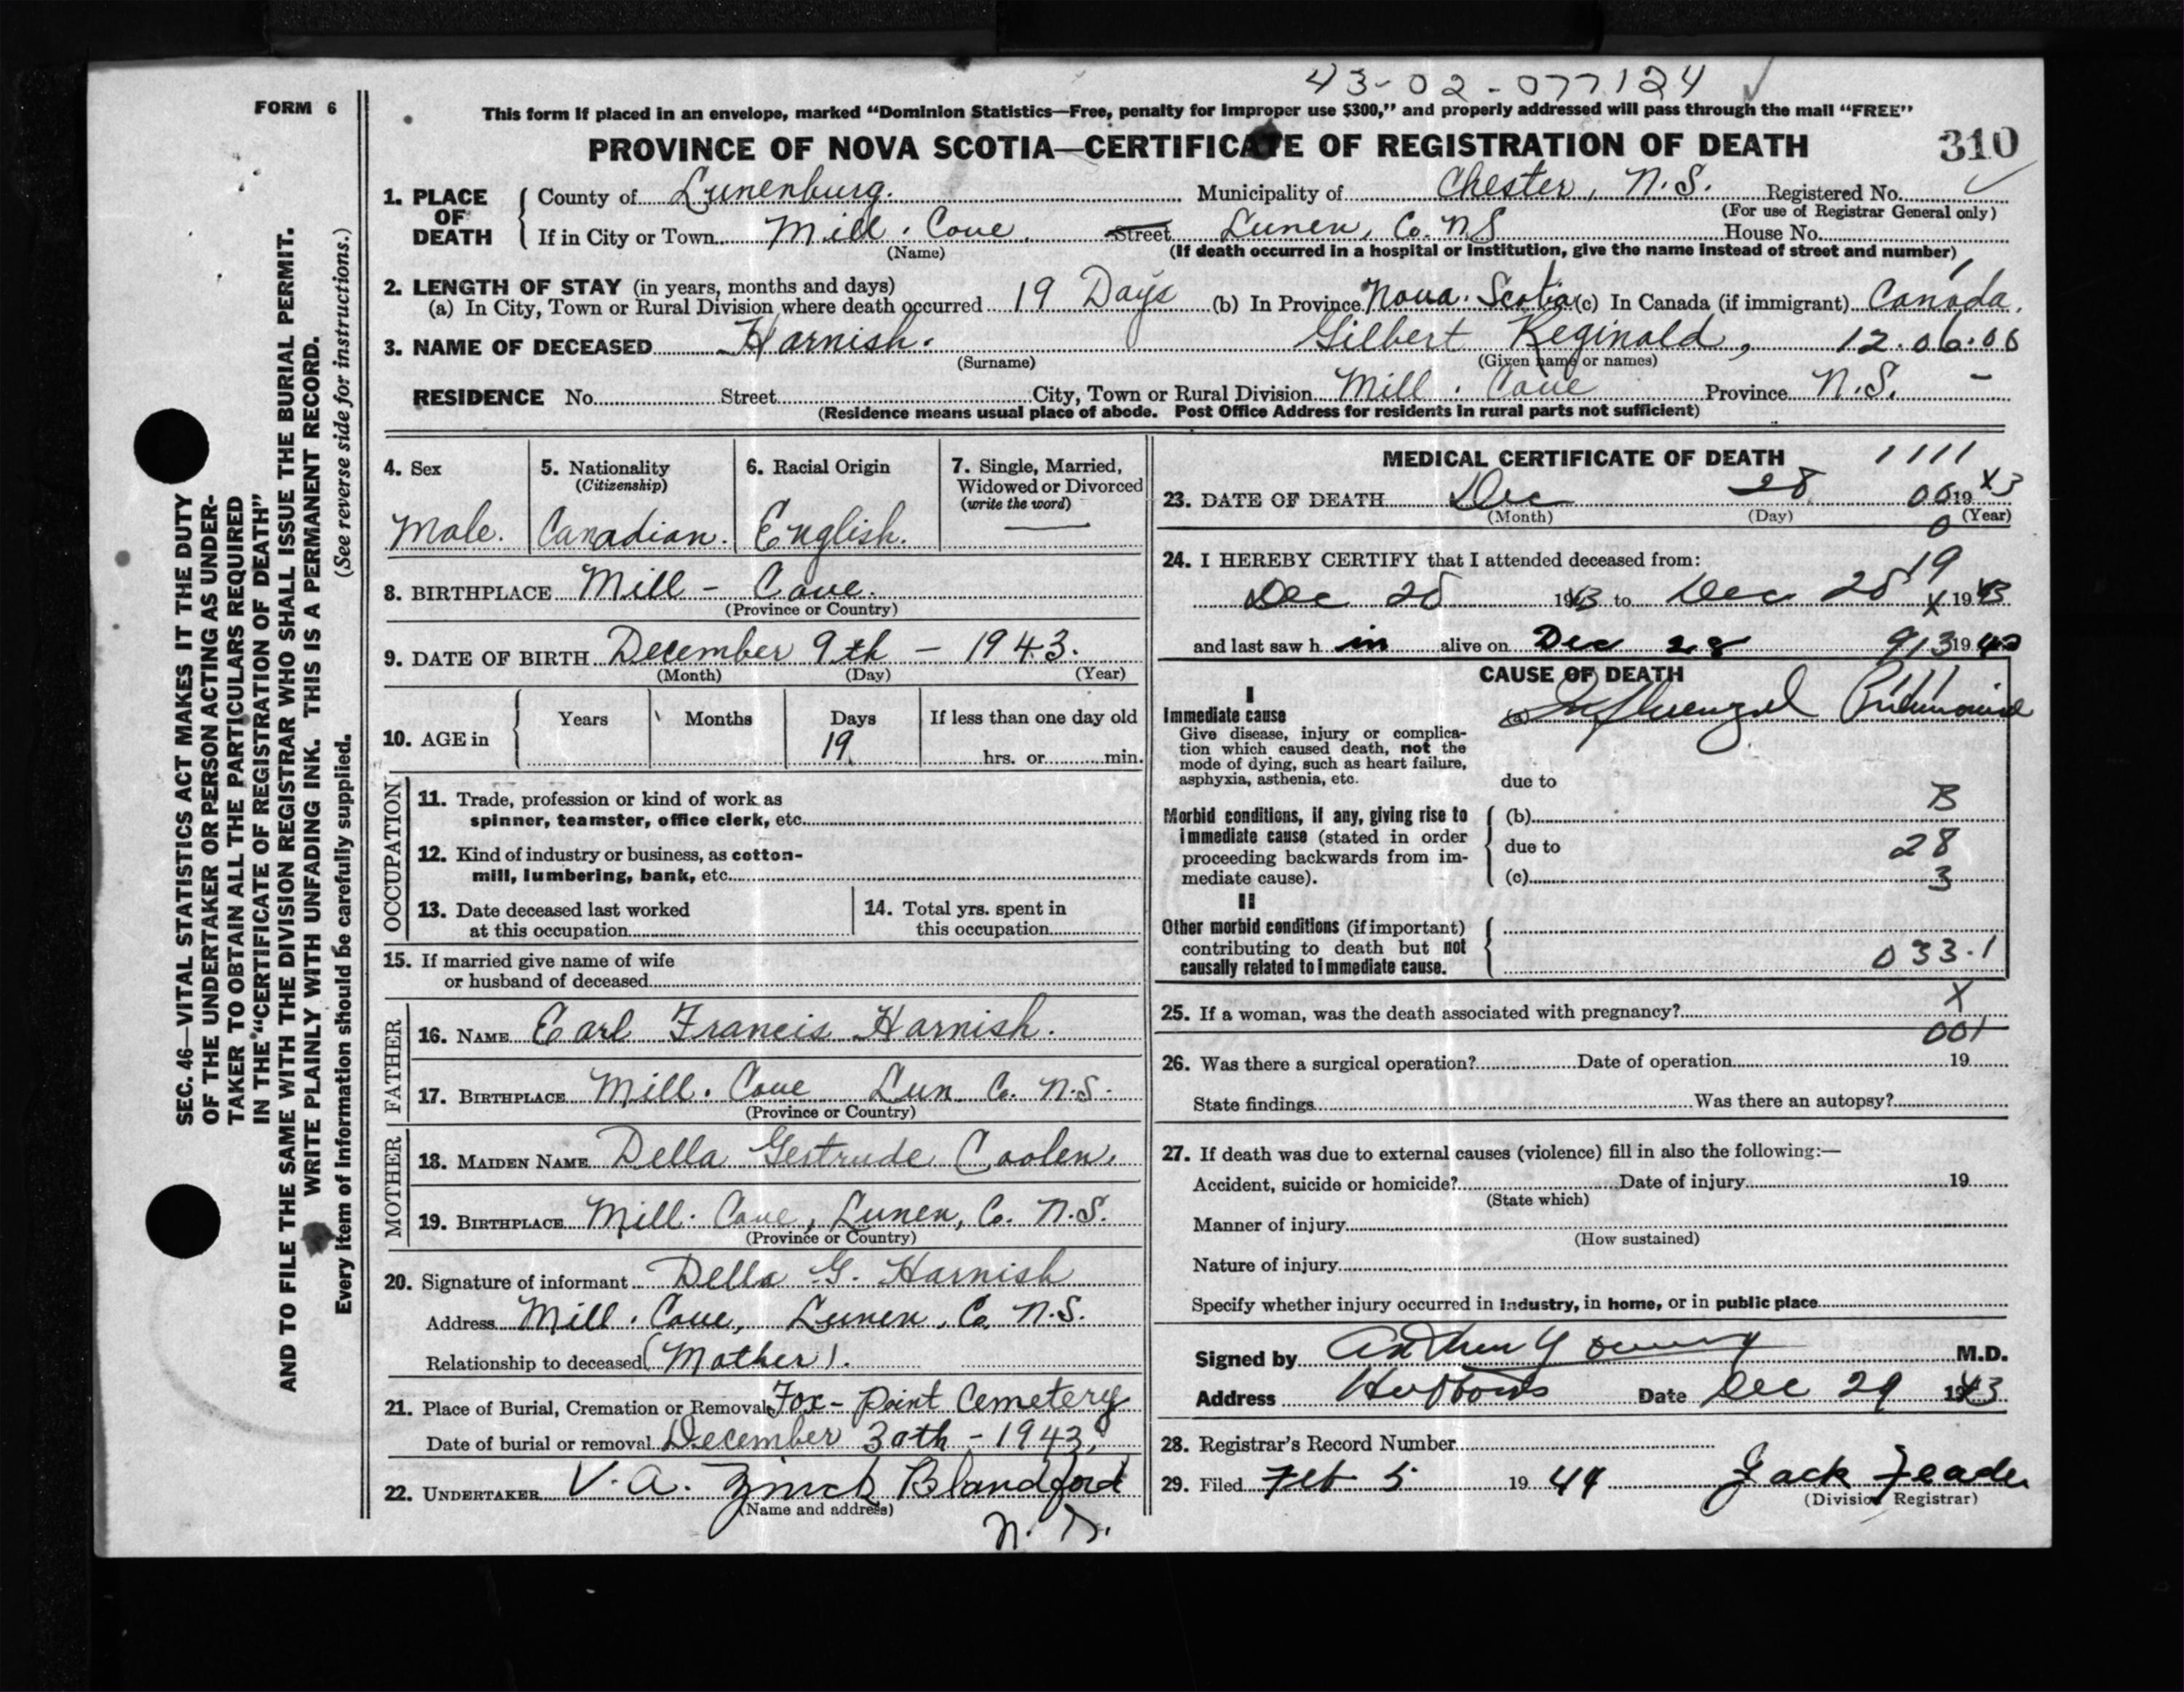 43-02-077124
FORM 6
This form if placed in an envelope, marked “Dominion Statistics—Free, penalty for improper use $300,” and properly addressed will pass through the mail “FREE”
PROVINCE OF NOVA SCOTIA—CERTIFICATE OF REGISTRATION OF DEATH
310
1. PLACE OF DEATH
County of Lunenburg. Municipality of Chester, N.S. Registered No.
(For use of Registrar General only)
If in City or Town Mill. Cove Street Lunen, Co. N.S House No.
(Name) (If death occurred in a hospital or institution, give the name instead of street and number)
2. LENGTH OF STAY (in years, months and days)
(a) In City, Town or Rural Division where death occurred 19 Days (b) In Province Nova. Scotia (c) In Canada (if immigrant) Canada.
3. NAME OF DECEASED Harnish. Gilbert Reginald, 12.06.06
(Surname) (Given name or names)
RESIDENCE No. Street City, Town or Rural Division Mill. Cove Province N.S. -
(Residence means usual place of abode. Post Office Address for residents in rural parts not sufficient)
SEC. 46—VITAL STATISTICS ACT MAKES IT THE DUTY
OF THE UNDERTAKER OR PERSON ACTING AS UNDER-
TAKER TO OBTAIN ALL THE PARTICULARS REQUIRED
IN THE “CERTIFICATE OF REGISTRATION OF DEATH”
AND TO FILE THE SAME WITH THE DIVISION REGISTRAR WHO SHALL ISSUE THE BURIAL PERMIT.
WRITE PLAINLY WITH UNFADING INK. THIS IS A PERMANENT RECORD.
Every item of information should be carefully supplied. (See reverse side for instructions.)
4. Sex
Male.
5. Nationality
(Citizenship)
Canadian.
6. Racial Origin
English.
7. Single, Married,
Widowed or Divorced
(write the word)
8. BIRTHPLACE Mill - Cove.
(Province or Country)
9. DATE OF BIRTH December 9th - 1943.
(Month) (Day) (Year)
10. AGE in
Years Months Days If less than one day old
19 hrs. or min.
OCCUPATION
11. Trade, profession or kind of work as
spinner, teamster, office clerk, etc.
12. Kind of industry or business, as cotton-
mill, lumbering, bank, etc.
13. Date deceased last worked
at this occupation
14. Total yrs. spent in
this occupation
15. If married give name of wife
or husband of deceased
FATHER
16. NAME Earl Francis Harnish.
17. BIRTHPLACE Mill. Cove Lun Co. N.S.
(Province or Country)
MOTHER
18. MAIDEN NAME Della Gertrude Coolen.
19. BIRTHPLACE Mill. Cove, Lunen, Co. N.S.
(Province or Country)
20. Signature of informant Della G. Harnish
Address Mill. Cove, Lunen, Co, N.S.
Relationship to deceased (Mother).
21. Place of Burial, Cremation or Removal Fox - Point Cemetery
Date of burial or removal December 30th - 1943.
22. UNDERTAKER V. A. Zinck Blandford
(Name and address)
N. S.
MEDICAL CERTIFICATE OF DEATH
1111
23. DATE OF DEATH Dec 28 00 19 43
(Month) (Day) (Year)
0
24. I HEREBY CERTIFY that I attended deceased from: 19
Dec 28 1943 to Dec 28 X 1943
and last saw h im alive on Dec 28 913 19 43
CAUSE OF DEATH
111
I
Immediate cause
Give disease, injury or complica-
tion which caused death, not the
mode of dying, such as heart failure,
asphyxia, asthenia, etc.
(a) Influenzal Pneumonia
due to
Morbid conditions, if any, giving rise to
immediate cause (stated in order
proceeding backwards from im-
mediate cause).
(b) B
due to 28
(c) 3
II
Other morbid conditions (if important)
contributing to death but not
causally related to immediate cause.
033.1
25. If a woman, was the death associated with pregnancy? X
001
26. Was there a surgical operation? Date of operation 19
State findings Was there an autopsy?
27. If death was due to external causes (violence) fill in also the following:—
Accident, suicide or homicide? Date of injury 19
(State which)
Manner of injury
(How sustained)
Nature of injury
Specify whether injury occurred in industry, in home, or in public place
Signed by M.D.
Address Hubbards Date Dec 29 1943
28. Registrar's Record Number
29. Filed Feb 5 19 44 Jack
(Division Registrar)